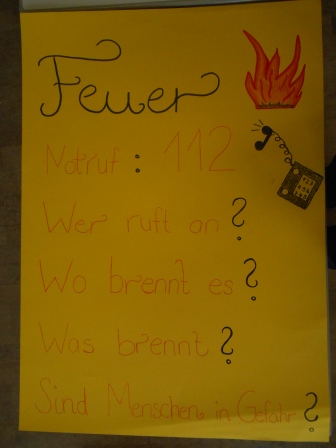 Feuer
Notruf : 112
Wer ruft an ?
Wo brennt es ?
Was brennt ?
Sind Menschen in Gefahr ?